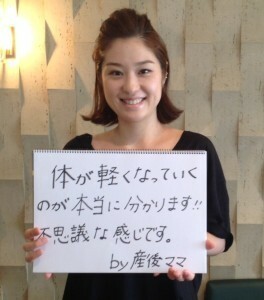 体が軽くなっていく
のが本当に分かります!!
不思議な感じです。
by 産後ママ